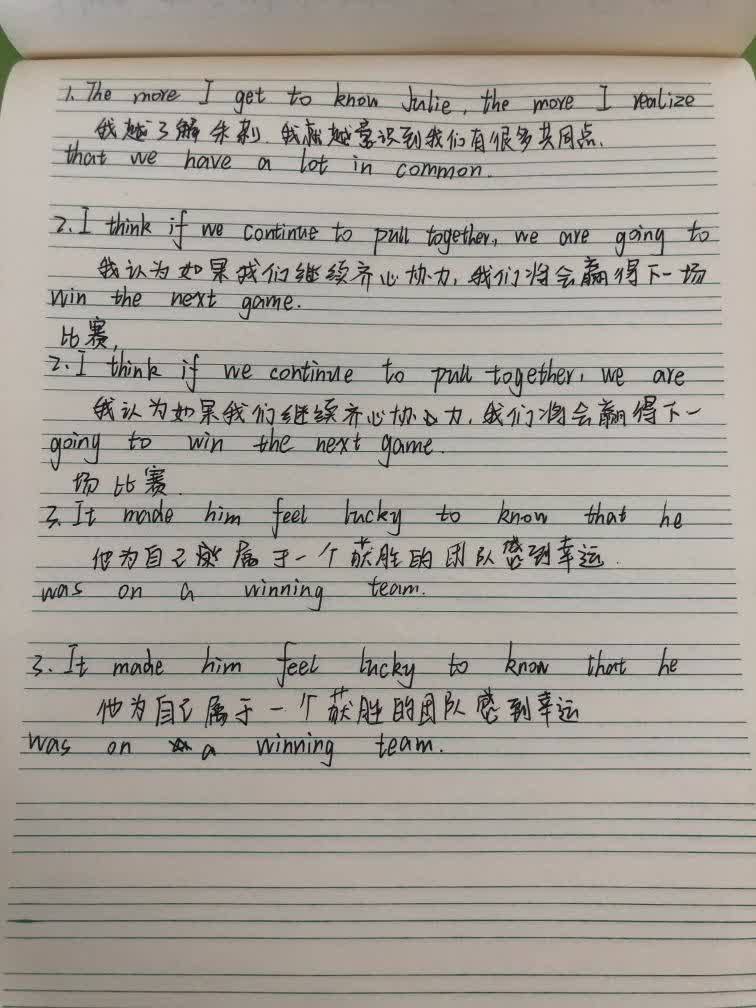 1. The more I get to know Julie, the more I realize
我越了解朱莉,我就越意识到我们有很多共同点.
that we have a lot in common.
2. I think if we continue to pull together, we are going to
我认为如果我们继续齐心协力,我们将会赢得下一场
win the next game.
比赛,
2. I think if we continue to pull together, we are
我认为如果我们继续齐心协力,我们将会赢得下一
going to win the next game.
场比赛.
3. It made him feel lucky to know that he
他为自己属于一个获胜的团队感到幸运.
was on a winning team.
3. It made him feel lucky to know that he
他为自己属于一个获胜的团队感到幸运
was on a winning team.